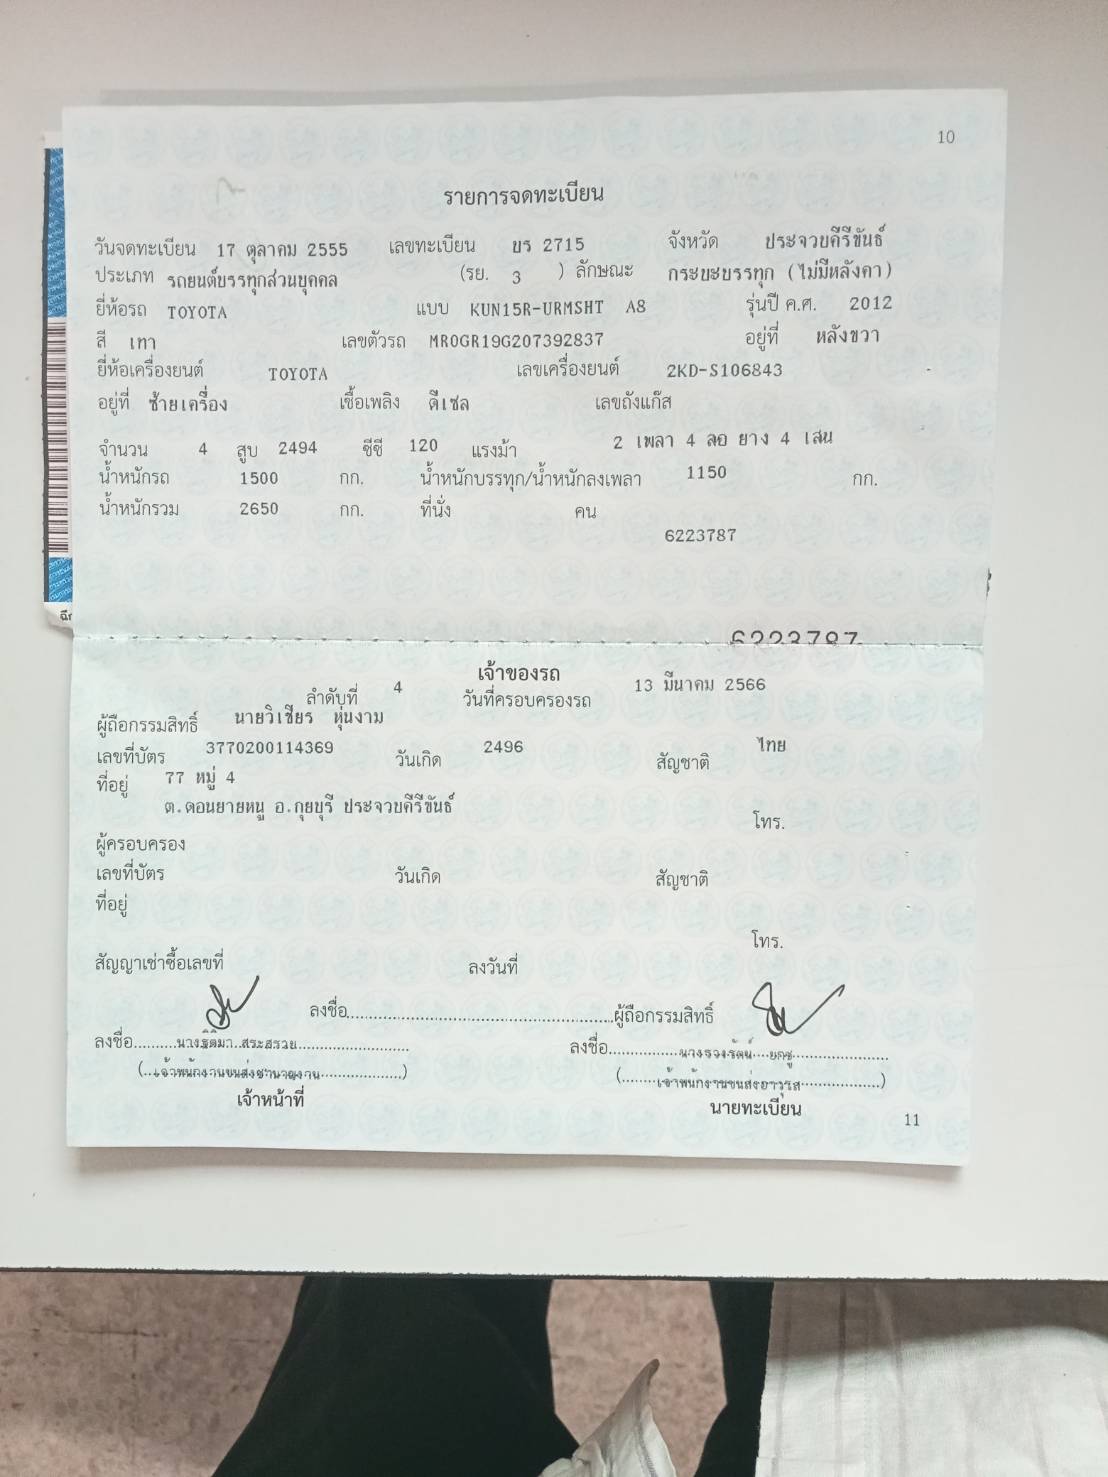 10
รายการจดทะเบียน
วันจดทะเบียน 17 ตุลาคม 2555 เลขทะเบียน บร 2715 จังหวัด ประจวบคีรีขันธ์
ประเภท รถยนต์บรรทุกส่วนบุคคล (รย. 3 ) ลักษณะ กระบะบรรทุก (ไม่มีหลังคา)
ยี่ห้อรถ TOYOTA แบบ KUN15R-URMSHT A8 รุ่นปี ค.ศ. 2012
สี เทา เลขตัวรถ MR0GR19G207392837 อยู่ที่ หลังขวา
ยี่ห้อเครื่องยนต์ TOYOTA เลขเครื่องยนต์ 2KD-S106843
อยู่ที่ ซ้ายเครื่อง เชื้อเพลิง ดีเซล เลขถังแก๊ส
จำนวน 4 สูบ 2494 ซีซี 120 แรงม้า 2 เพลา 4 ล้อ ยาง 4 เส้น
น้ำหนักรถ 1500 กก. น้ำหนักบรรทุก/น้ำหนักลงเพลา 1150 กก.
น้ำหนักรวม 2650 กก. ที่นั่ง คน
6223787
6223787
เจ้าของรถ
ลำดับที่ 4 วันที่ครอบครองรถ 13 มีนาคม 2566
ผู้ถือกรรมสิทธิ์ นายวิเชียร หุ่นงาม
เลขที่บัตร 3770200114369 วันเกิด 2496 สัญชาติ ไทย
ที่อยู่ 77 หมู่ 4
ต.ดอนยายหนู อ.กุยบุรี ประจวบคีรีขันธ์
โทร.
ผู้ครอบครอง
เลขที่บัตร วันเกิด สัญชาติ
ที่อยู่
โทร.
สัญญาเช่าซื้อเลขที่ ลงวันที่
ลงชื่อ ผู้ถือกรรมสิทธิ์
ลงชื่อ นางฐิติมา สระสรวย ลงชื่อ นางรวงรัตน์ ยกชู
(เจ้าพนักงานขนส่งชำนาญงาน) (เจ้าพนักงานขนส่งอาวุโส)
เจ้าหน้าที่ นายทะเบียน
11